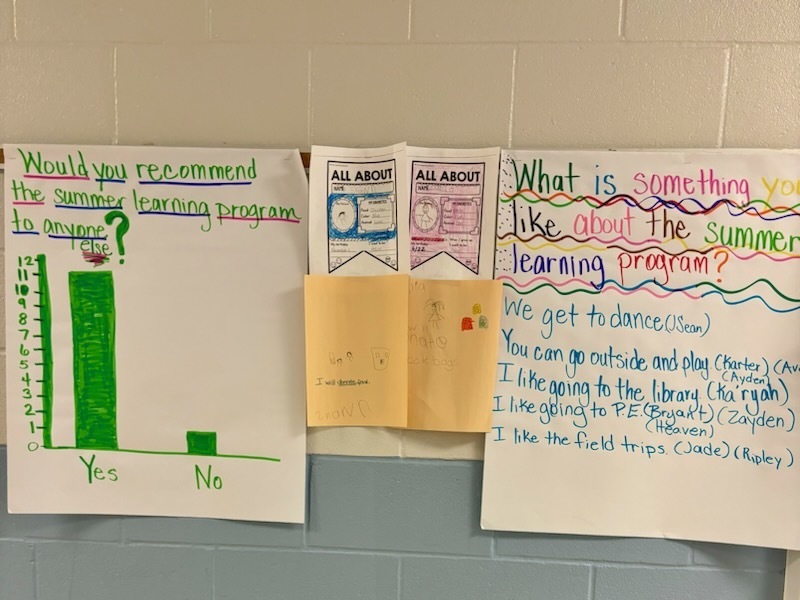 Would you recommend
the summer learning program
to anyone
else?
12
11
10
9
8
7
6
5
4
3
2
1
0
Yes No
ALL ABOUT
NAME
ALL ABOUT
NAME
I will
What is something
like about the summer
learning program?
We get to dance (JSean)
You can go outside and play. (Karter)
(Ayden)
I like going to the library. (Ka'ryah)
I like going to P.E. (Bryant) (Zayden)
(Heaven)
I like the field trips. (Jade) (Ripley)